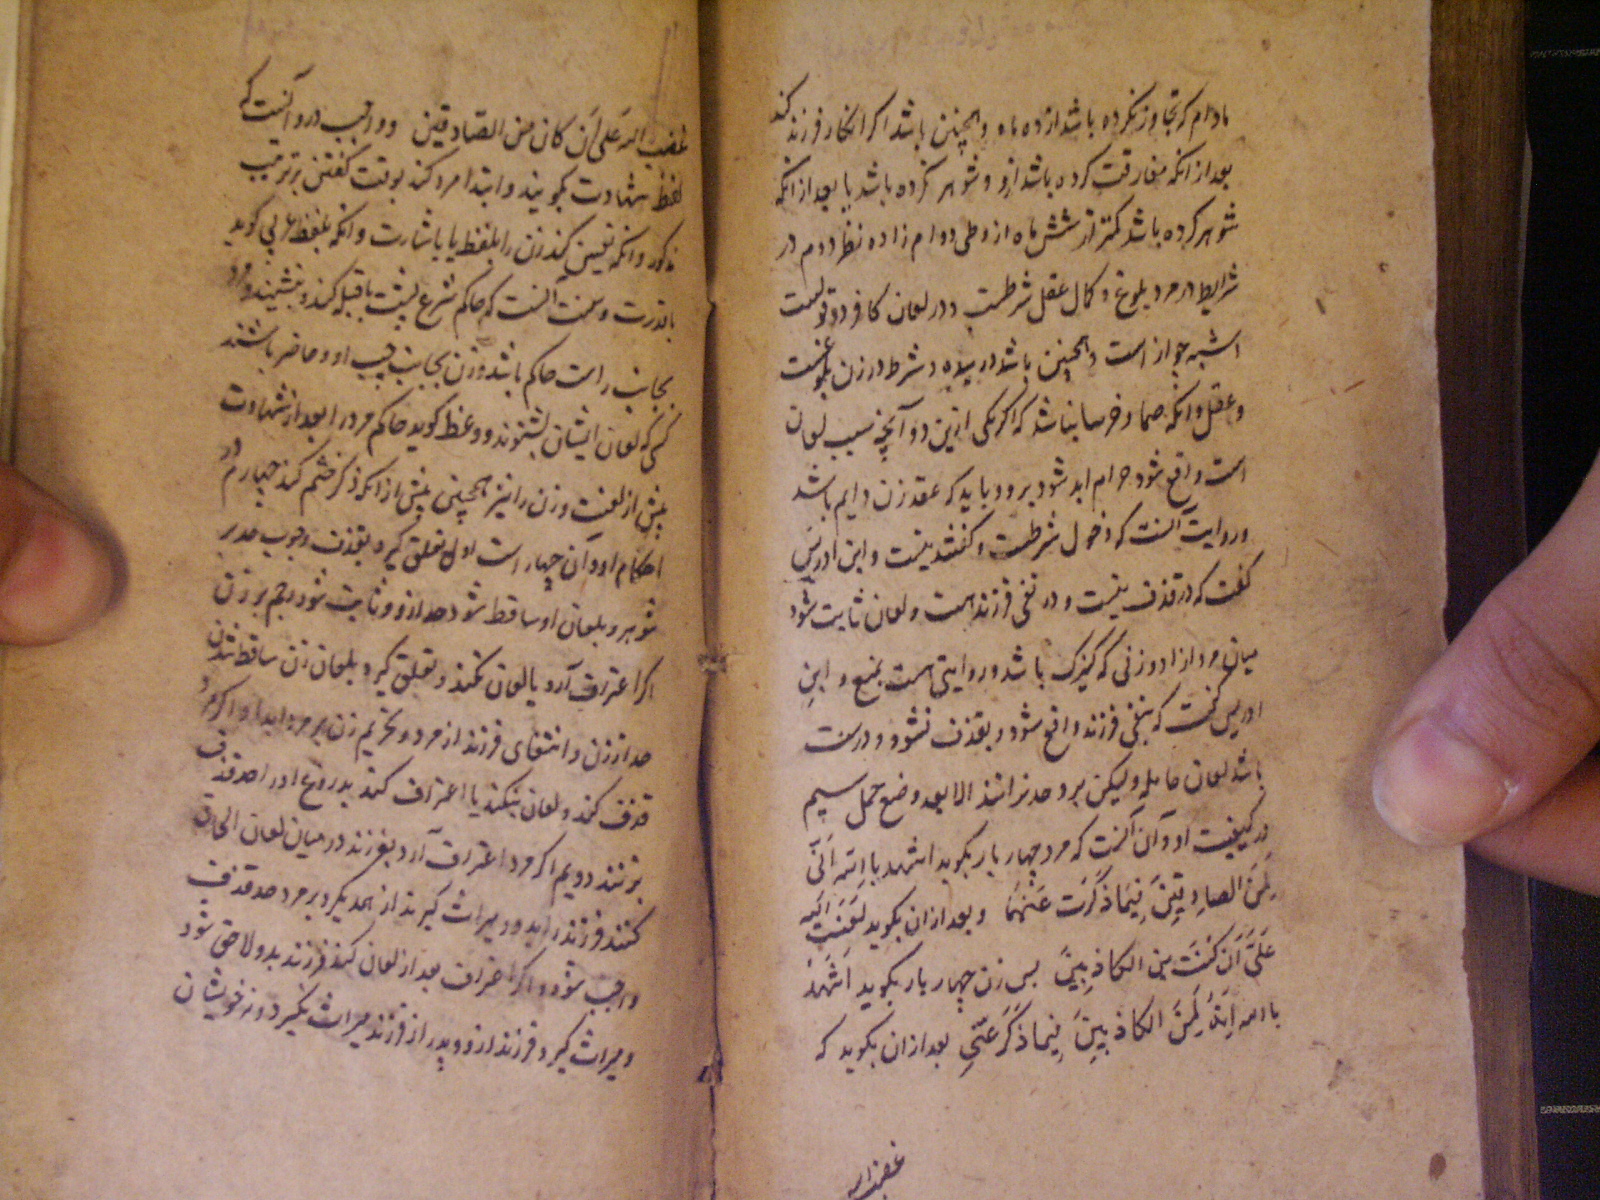 مادام که تجاوز نکرده باشد از ده ماه و همچنین باشد اگر انکار فرزند کند
بعد از آنکه مفارقت کرده باشد ازو و شوهر نکرده باشد یا بعد از آنکه
شوهر کرده باشد کمتر از شش ماه از وطی دوام زاده نظر دوم در
شرایط در مرد بلوغ و کمال عقل شرطست و در لعان کافر دو قولست
اشبه جواز است و همچنین باشد در بنده و شرط در زن بلوغست
و عقل و انکه صما و خرسا نباشد که اگر یکی ازین دو آنچه سبب لعان
است واقع شود حرام ابد شود برو و باید که عقد زن دایم باشد
و روایت آنست که دخول شرطست و گفتند نیست و ابن ادریس
گفت که در قذف نیست و در نفی فرزند هست و لعان ثابت شود
میان مرد ازاد و زنی که کنیزک باشد و روایتی هست بمنع و ابن
ادریس گفت که بنفی فرزند واقع شود و بقذف نشود و درست
باشد لعان حامله و لیکن برو حد نرانند الا بعد وضع حمل سیم
در کیفیت او و آن آنست که مرد چهار بار بگوید اشهد بالله انّی
لمن الصادقین فیما ذکرت عنها و بعد ازان بگوید لعنت الله
علیّ ان کنت من الکاذبین پس زن چهار بار بگوید اشهد
بالله انه لمن الکاذبین فیما ذکر عنّی بعد ازان بگوید که
غضب الله
غضب الله علی ان کان من الصادقین و واجب درو آنست که
لفظ شهادت بگویند و ابتدا مرد کند بوقت گفتن بر ترتیب
مذکور و انکه تعیین کند زن را بلفظ یا باشارت و انکه بلفظ عربی گوید
با قدرت و سنت آنست که حاکم شرع پشت با قبله کند و بنشیند و مرد
بجانب راست حاکم باشد و زن بجانب چپ او و حاضر باشند
کسی که لعان ایشان بشنوند و وعظ گوید حاکم مرد را بعد از شهادت
پیش از لعنت و زن را نیز همچنین پیش از انکه ذکر خشم کند چهارم در
احکام او و آن چهار است اول تعلق گیرد بقذف وجوب حد بر
شوهر و بلعان او ساقط شود حد ازو و ثابت شود رجم بر زن
اگر اعتراف آرد یا لعان نکند و تعلق گیرد بلعان زن ساقط شدن
حد از زن و انتفای فرزند از مرد و تحریم زن بر مرد ابدا و اگر مرد
قذف کند و لعان نکند یا اعتراف کند بدروغ او را حد قذف
بزنند دویم اگر مرد اعتراف آرد بفرزند در میان لعان الحاق
کنند فرزند را بدو و میراث گیرند از همدیگر و بر مرد حد قذف
واجب شود و اگر اعتراف بعد از لعان کند فرزند بدو لاحق شود
و میراث گیرد فرزند ازو و پدر از فرزند میراث نگیرد و نه خویشان